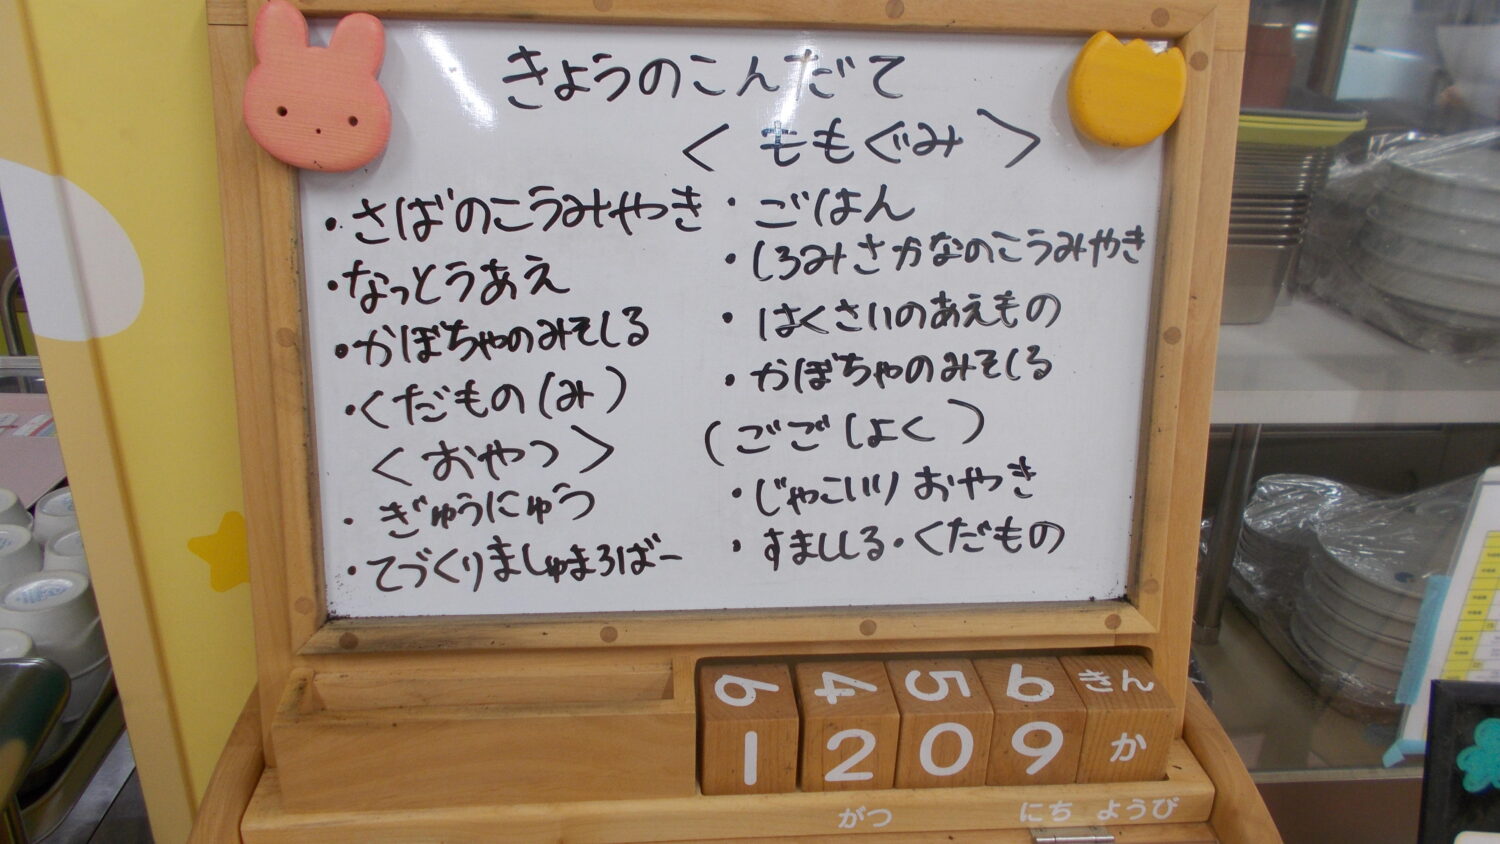 きょうのこんだて
<ももぐみ>
・さばのこうみやき
・なっとうあえ
・かぼちゃのみそしる
・くだもの(み)
<おやつ>
・ぎゅうにゅう
・てづくりましゅまろばー
・ごはん
・しろみさかなのこうみやき
・はくさいのあえもの
・かぼちゃのみそしる
(ごごしょく)
・じゃこいりおやき
・すましじる・くだもの
6 4 5 6 きん
1 2 0 9 か
がつ にち ようび